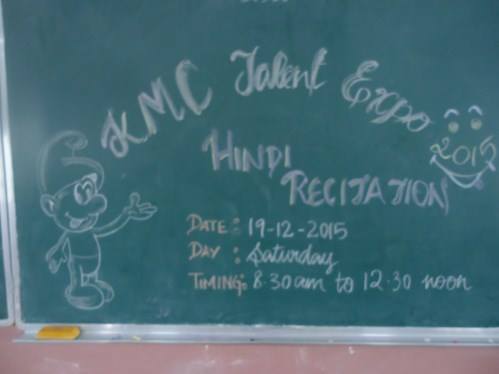 KMC Talent Expo 2015
HINDI
RECITATION
DATE: 19-12-2015
DAY: Saturday
TIMING: 8.30am to 12.30 noon